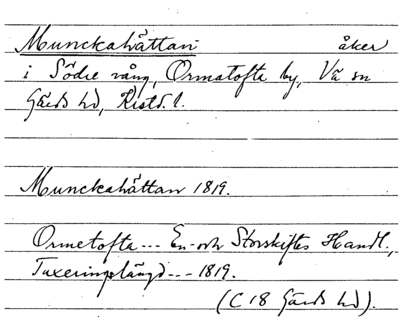 Munckahättan åker
i Södre vång, Ormatofta by, Vä sn
Gärds hd, Kristd. l.
Munckahättan 1819.
Ormetofta --- En- och Storskiftes Handl.,
Taxeringslängd --- 1819.
(C 18 Gärds hd).